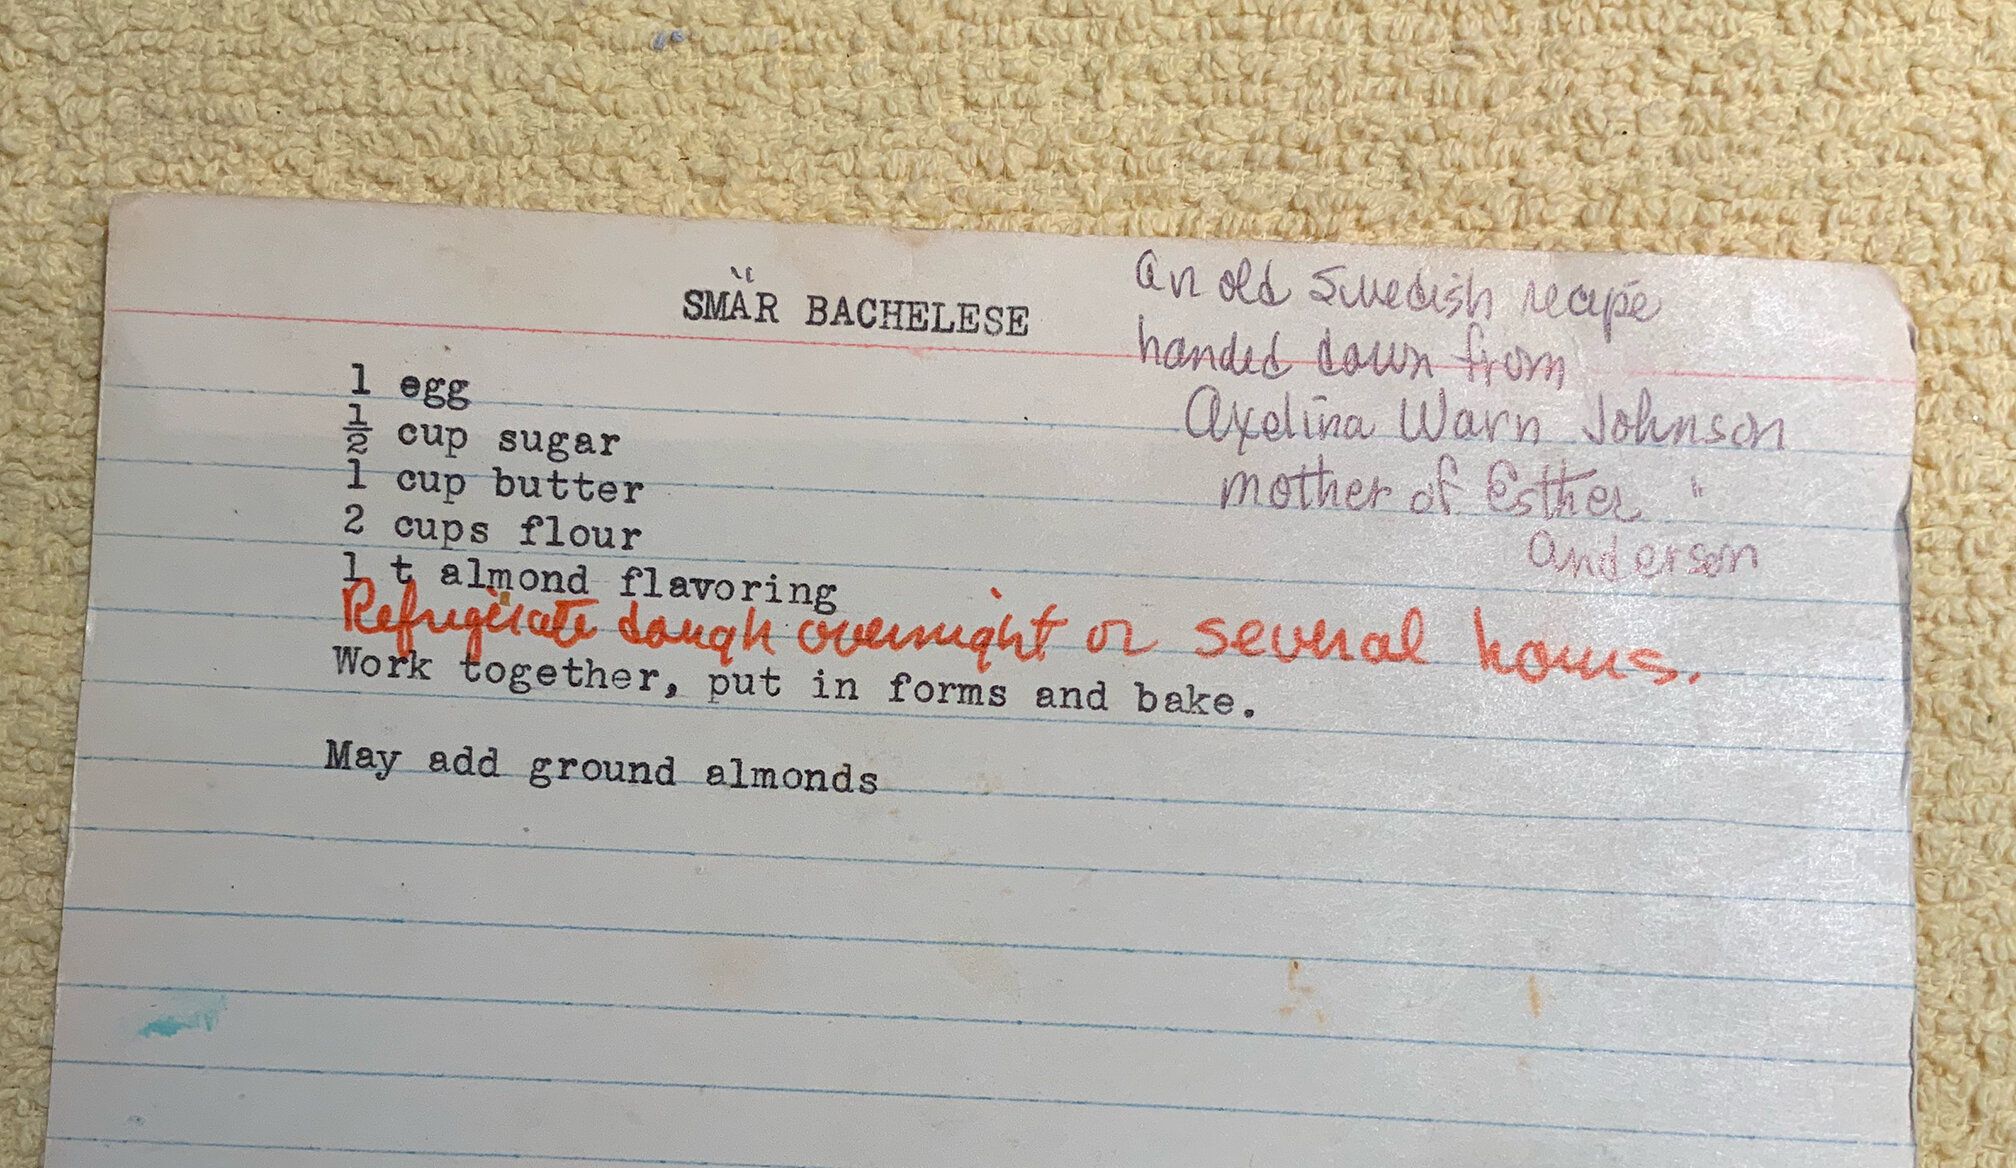 SMÄR BACHELESE
An old Swedish recipe
handed down from
Axelina Warn Johnson
mother of Esther "
Anderson
1 egg
½ cup sugar
1 cup butter
2 cups flour
1 t almond flavoring
Refrigerate dough overnight or several hours.
Work together, put in forms and bake.
May add ground almonds